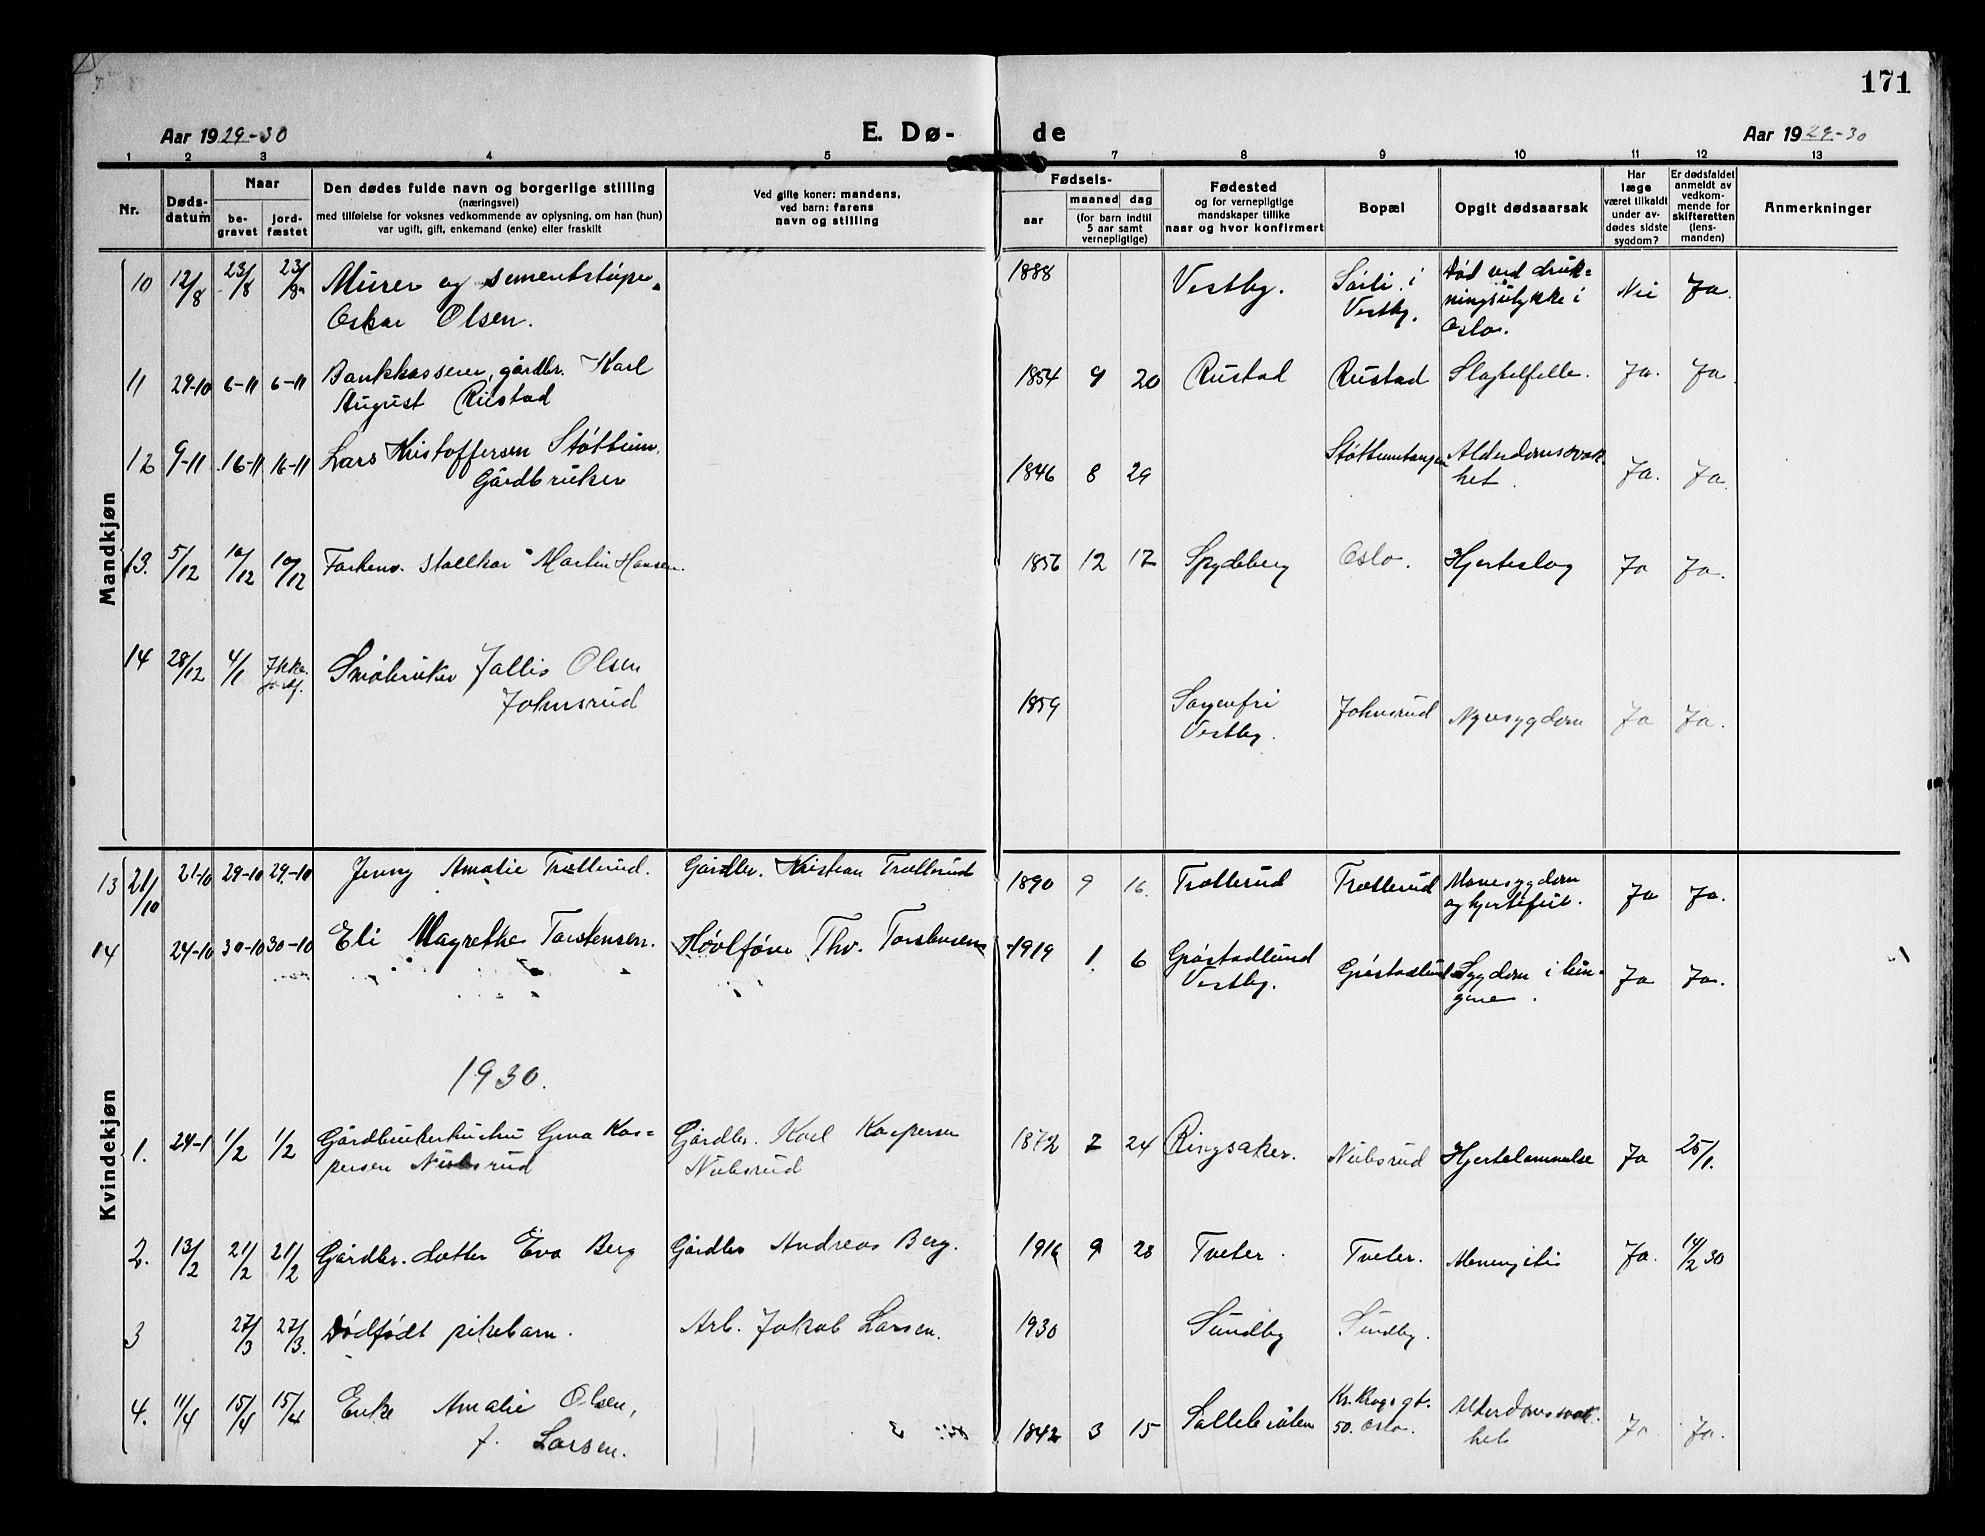 171
Aar 1929-30
E. Dø-
de
Aar 1929-30
1 2 3 4 5 7 8 9 10 11 12 13
Nr.
Døds-
datum
Naar
be-
gravet
jord-
fæstet
Den dødes fulde navn og borgerlige stilling
(næringsvei)
med tilføielse for voksnes vedkommende av oplysning, om han (hun)
var ugift, gift, enkemand (enke) eller fraskilt
Ved gifte koner: mandens,
ved barn: farens
navn og stilling
Fødsels-
aar
maaned dag
(for barn indtil
5 aar samt
vernepligtige)
Fødested
og for vernepligtige
mandskaper tillike
naar og hvor konfirmert
Bopæl
Opgit dødsaarsak
Har
læge
været tilkaldt
under av-
dødes sidste
sygdom?
Er dødsfaldet
anmeldt av
vedkom-
mende for
skifteretten
(lens-
manden)
Anmerkninger
Mandkjøn
10 12/8 23/8 23/8 Murer og sementstøper
Oskar Olsen.
1888 Vestby. i
Vestby.
Død ved druk-
ningsulykke i
Oslo.
Nei Ja.
11 29-10 6-11 6-11 Bankkasserer, gårdbr. Karl
August Rustad
1854 9 20 Rustad Rustad Slagtilfelle. Ja. Ja.
12 9-11 16-11 16-11 Lars Kristoffersen Støttum.
Gårdbruker
1846 8 29 Støttumtangen Alderdomssvak-
het.
Ja. Ja.
13. 5/12 10/12 10/12 Forhenv. stallkar Martin Hansen.
1856 12 17 Spydeberg Oslo. Hjerteslag Ja Ja.
14 28/12 4/1 Ikke
jordf.
Småbruker Jallis Olsen
Johnsrud
1859 Sorgenfri
Vestby.
Johnsrud Nyresygdom Ja Ja.
Kvindekjøn
13 21/10 21-10 29-10 29-10 Jenny Amalie Trætterud. Gårdbr. Kristian Trætterud
1890 9 16. Trætterud Trætterud Mavesygdom
og hjertefeil.
Ja Ja.
14 24-10 30-10 30-10 Eli Magrethe Torstensen. Høvlfører Thv. Torstensen
1919 1 6 Grøstadlund
Vestby.
Grøstadlund Sygdom i lun-
gene.
Ja Ja.
1930.
1. 24-1 1/2 1/2 Gårdbrukerhustru Gina Kas-
persen Nubsrud
Gårdbr. Karl Kaspersen
Nubsrud
1872 2 24 Ringsaker. Nubsrud Hjertelammelse Ja 25/1.
2. 13/2 21/2 21/2 Gårdbr. datter Eva Berg Gårdbr Andreas Berg.
1916 9 28 Tveter. Tveter. Meningitis Ja. 14/2 30
3 27/3 27/3. Dødfødt pikebarn. Arb. Jakob Larsen.
1930 Sundby Sundby.
4. 11/4 15/4 15/4 Enke Amalie Olsen,
f. Larsen.
1842 3 15 Kr. Krogs gt.
50. Oslo.
Alderdomssvak-
het
Ja. Ja.